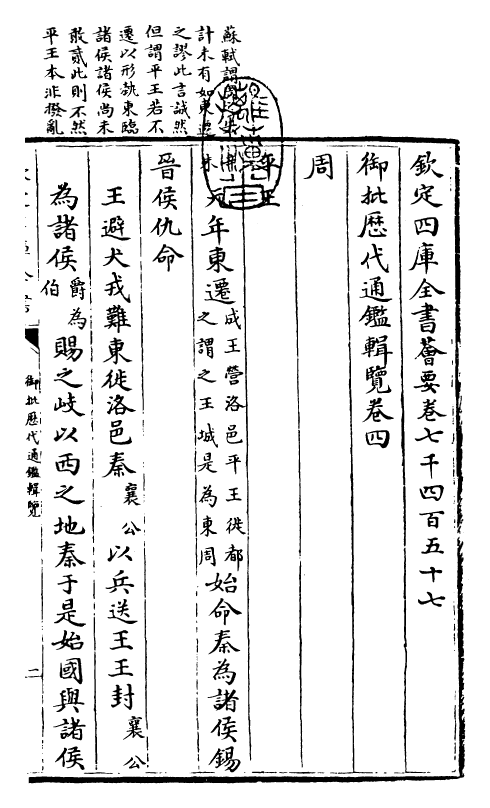 蘇軾謂
計未有如東遷
之謬此言誠然
但謂平王若不
遷以形埶東臨
諸侯諸侯尚未
敢貳此則不然
平王本非撥亂
欽定四庫全書薈要卷七千四百五十七
御批歷代通鑑輯覽卷四
周
平王
元年東遷成王營洛邑平王徙都之謂之王城是為東周始命秦為諸侯錫
晉侯仇命
王避犬戎難東徙洛邑秦襄公以兵送王王封襄公
為諸侯爵為伯賜之岐以西之地秦于是始國與諸侯
御批歷代通鑑輯覽
二